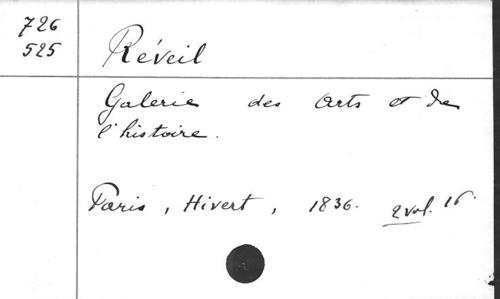 726
525
Réveil
Galerie des Arts et de
l'histoire.
Paris, Hivert, 1836. 2 vol. 16.